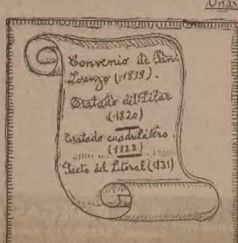 Convenio de San
Lorenzo (-1819).
Tratado del Pilar
(-1820)
Tratado cuadrilátero.
(1822)
Pacto del Litoral (1831)